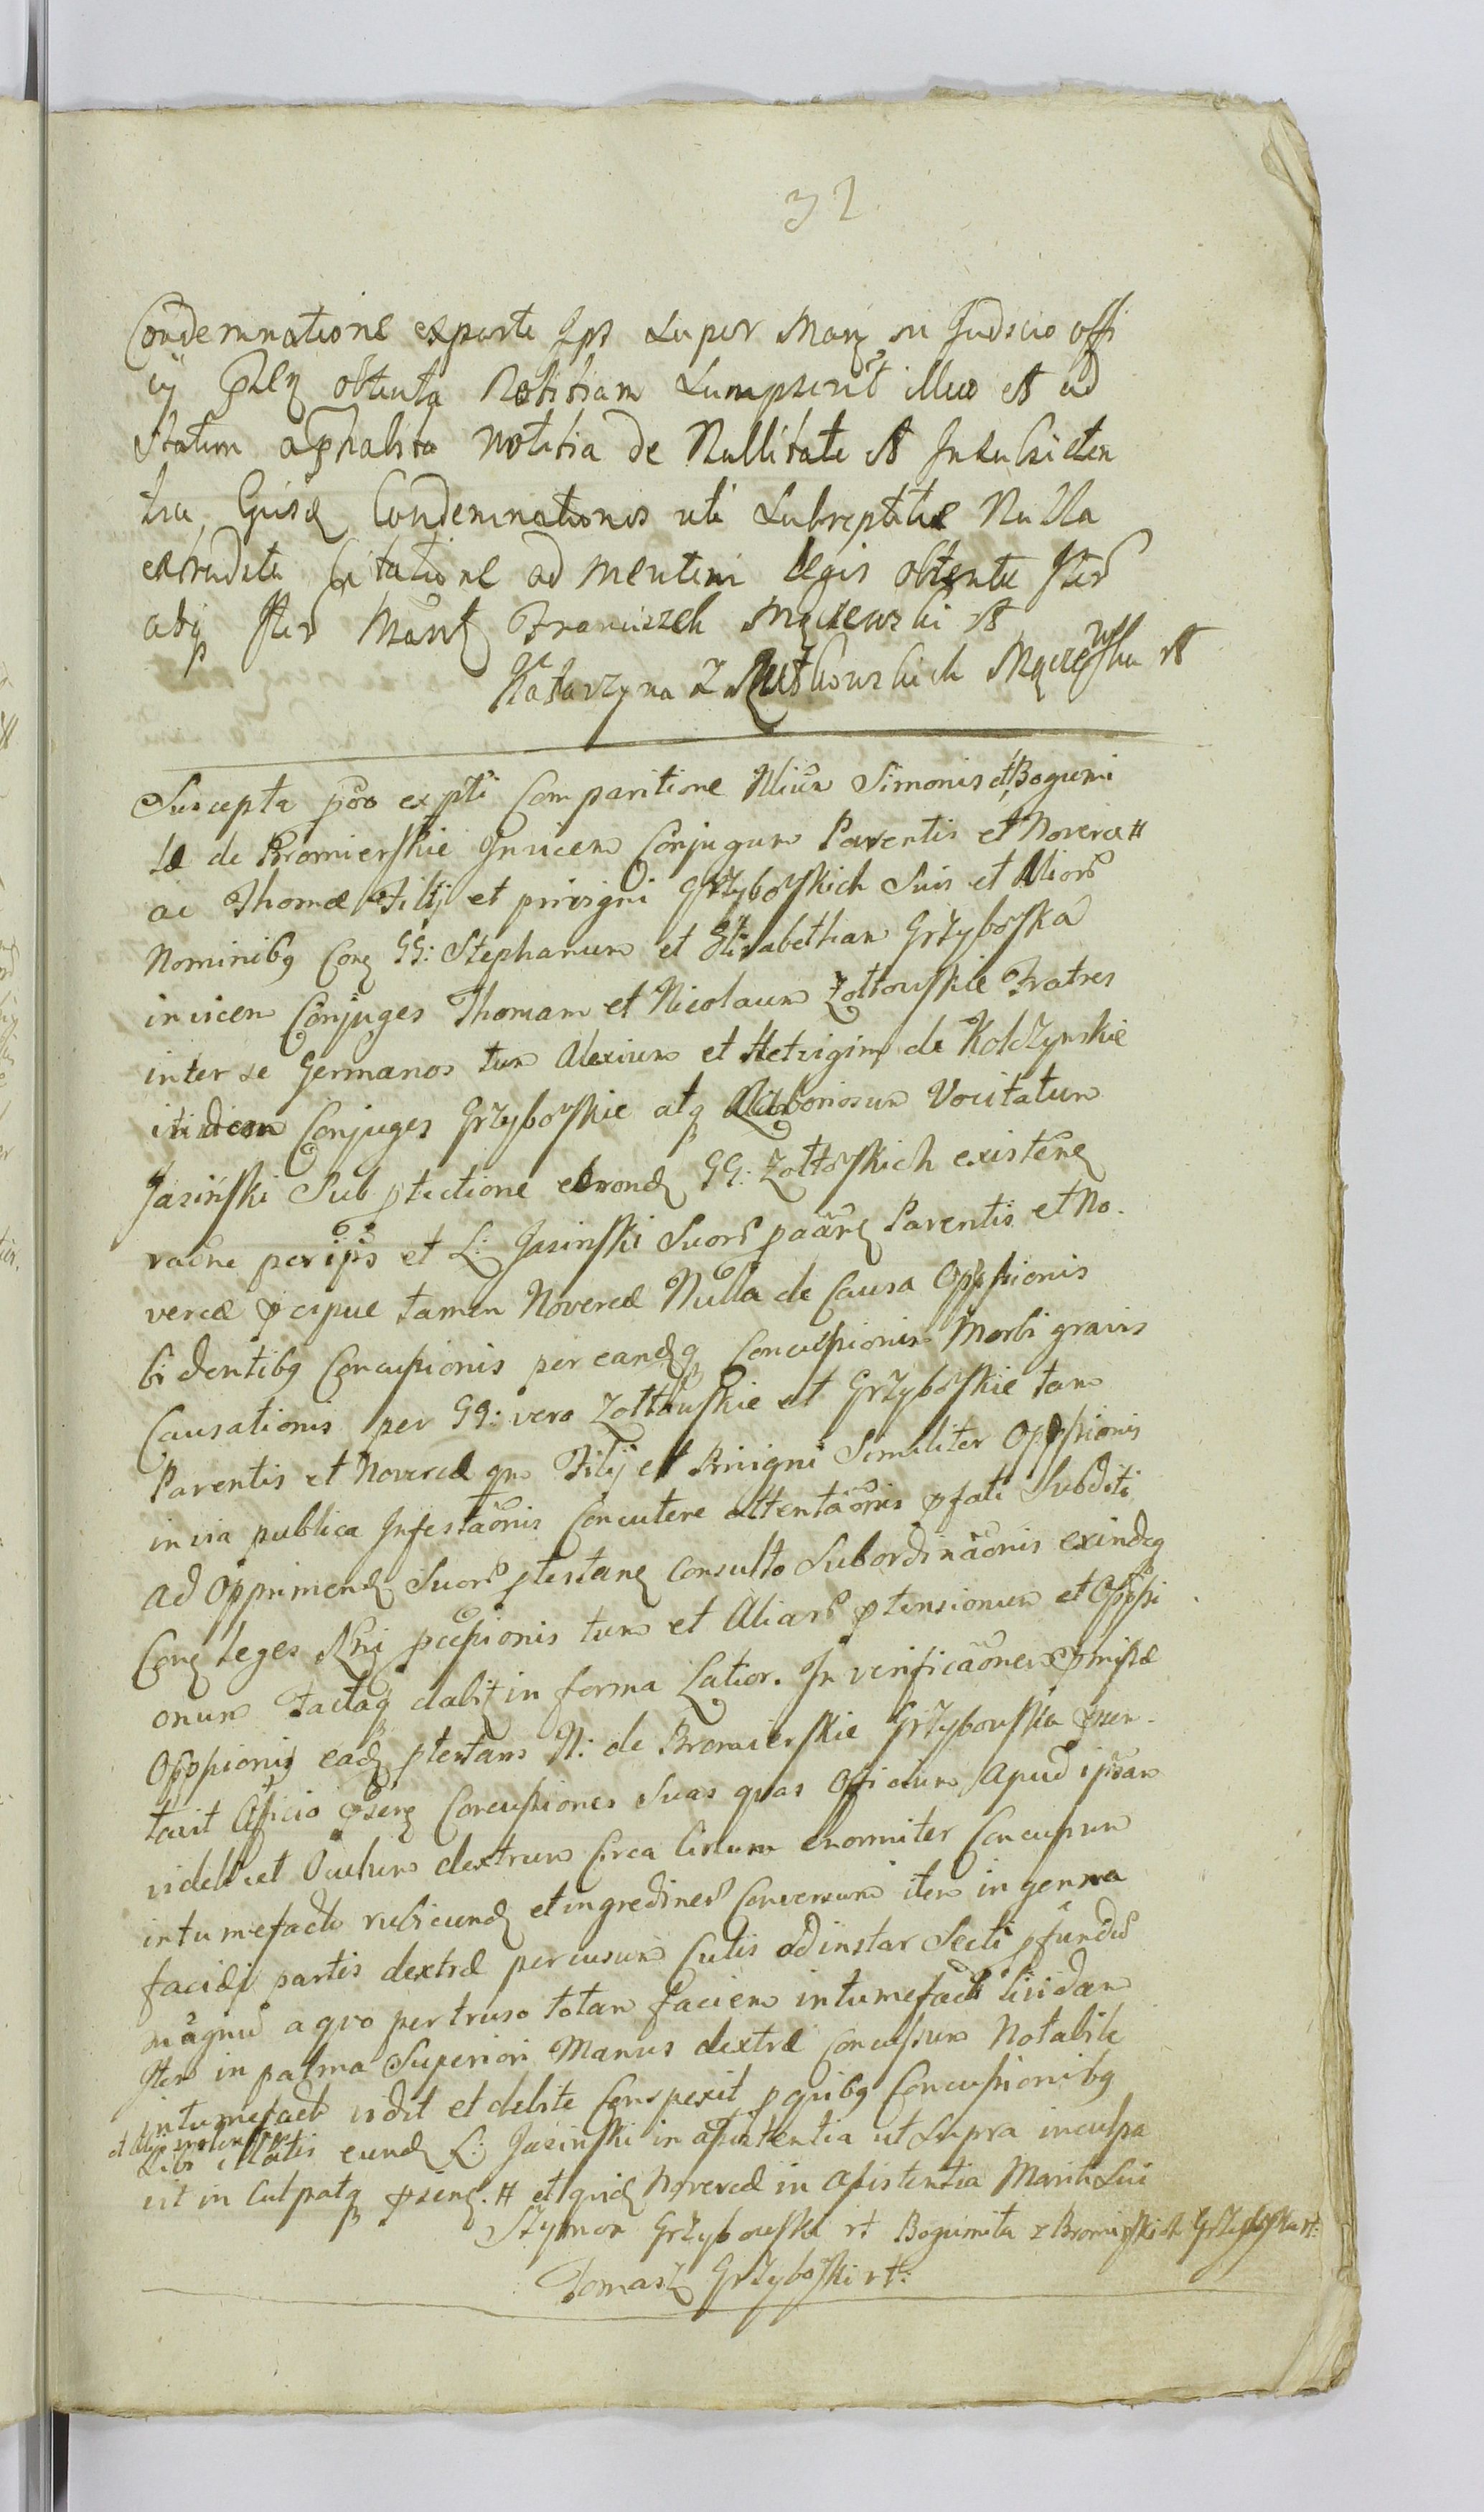 32
Condemnatione exparte Ips Super Manz in Judicio offi
cij obtenta Notitiam Sumpserit illico et ad
statim apphabita notitia de Nullitate et Insubsisten
tia Condemnationis uti Subreptitiæ Nulla
extradita Citatione ad mentem legis obtente Iter
atq Iter Manz Franciszek Mączewski
Katarzyna z Rutkowskich Mączewska
Suscepta exp̃ti Comparitione Simonis et Bogumi
læ de Bromierskie Invicem Conjugum Parentis et Novercæ #
ac Thomæ Filij et privigni Grzybowskich Suis et Alior̃
Nominibq Conz GG: Stephanum et Elisabetham Grzybowska
invicem Conjuges Thomam et Nicolaum Zołtowskie Fratres
inter se Germanos tum Alexium et Hetvigim de Kołdzynskie
itidem Conjuges Grzybowskie atq Laboriosum Vocitatum
Jasiński Sub ptectione eorond GG: Zołtowskich existenz
raõne per ip̃s et L: Jasinski Suor̃ paãrz Parentis et No-
vercæ pcipue tamen Novercæ Nulla de Causa Oppssionis
bidentibq Concussionis per eandq Concussionis Morbi gravis
Causationis per GG: vero Zołtowskie et Grzybowskie tam
Parentis et Novercæ qm Filij et Privigni Similiter Oppssionis
in via publica Infestaõnis Concutere attentaõnis pfati Subditi
ad Opprimend Suor̃ ptestanz Consulto Subordinaõnis exindeq
Conz leges Rni pcessionis tum et Aliar̃ ptensionum et Oppssi
onum Factaq dabit in forma Latior. In verificaõnem pmissæ
Oppssionis ead ptestans N: de Bromierskie Grzybowska psen-
tavit Officio psenz Concussiones Suas quas Officium Apud ipsam
videlicet Oculum dextrum Circa Circum enormiter Concussum
intumefactu rubicund et ingredines Conversum item in genna
faciæi partis dextræ percusum Cutis ad instar Secti pfundũ
magnũ a quo pertruso totam faciem intumefactã lividam
Item in palma Superiori Manus dextræ Concussum Notabile
intumefactu vidit et debite Conspexit p quibq Concussionibq
et Alijs violentijs
Sibi illatis eund L: Jasinski in assistentia ut Supra inculpa
vit in Culpatq psenz. # et quid Novercæ in Assistentia Mariti Sui
Szymon Grzybowski rt Bogumiła z Bromirskich Grzybowska rt:
Tomasz Grzybowski rt: